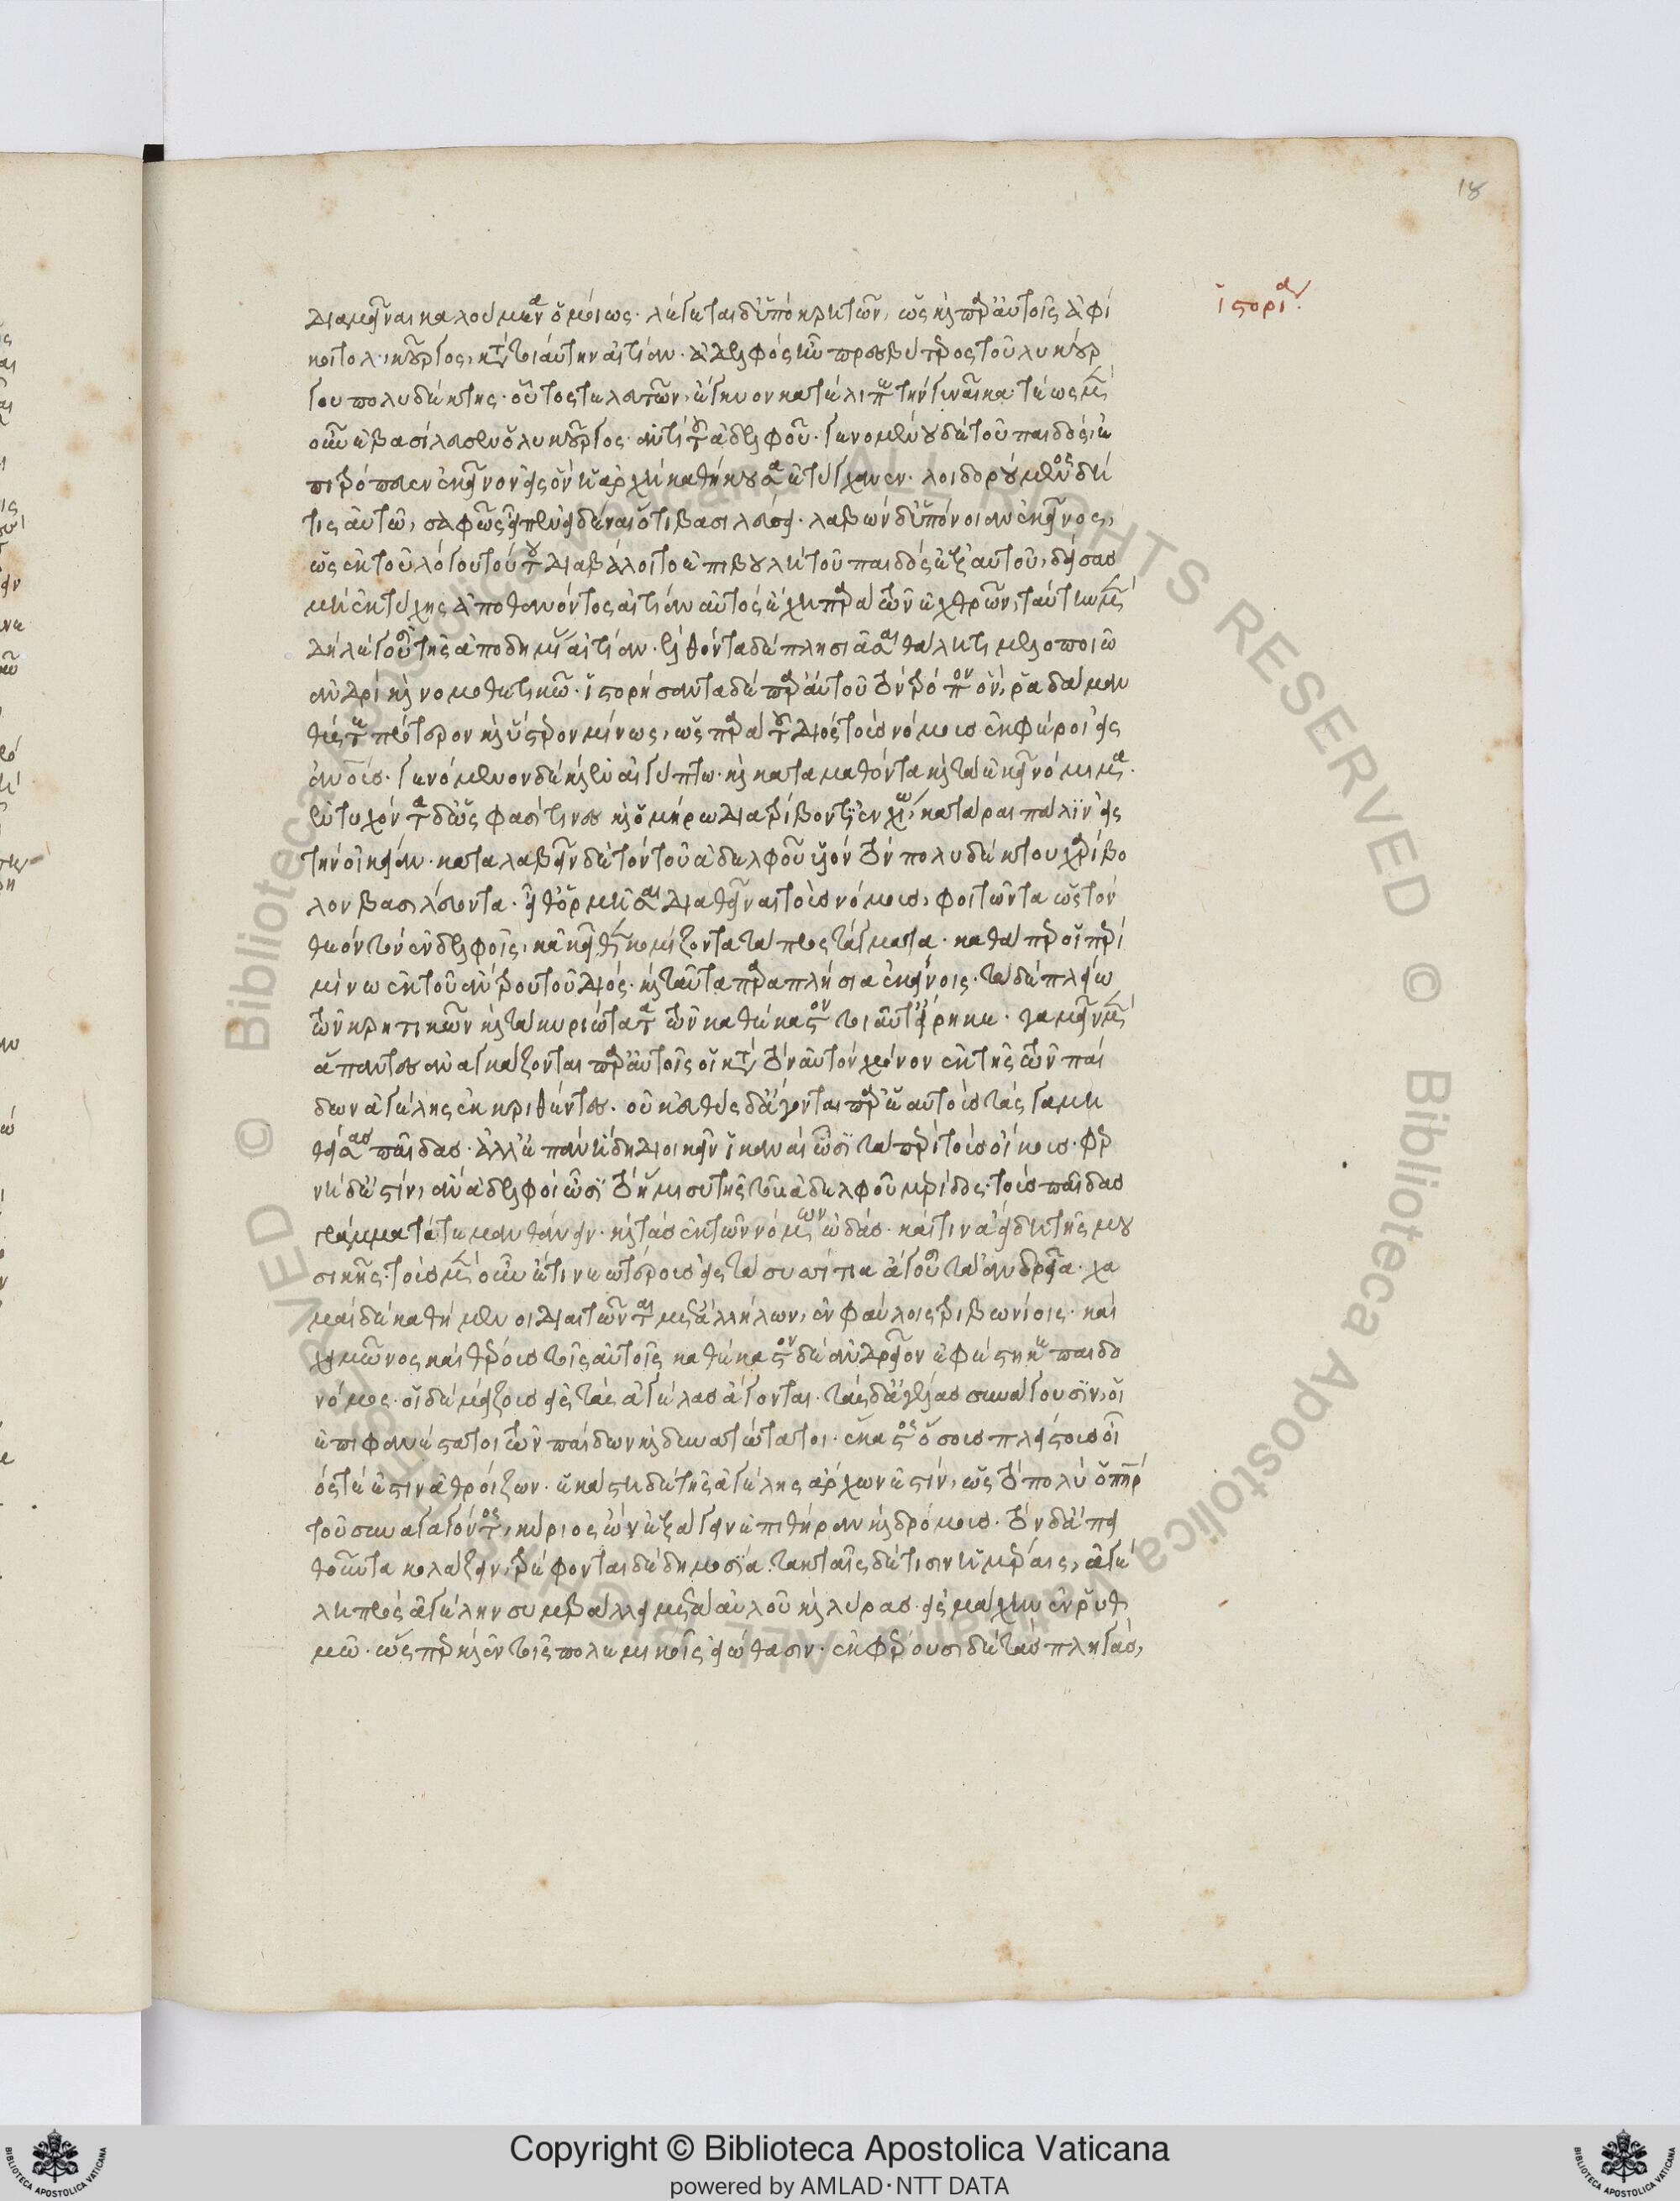 διαμεῖναι καλούμενα ὁμοίως· λέγεται δ' ὑπὸ κρητῶν, ὡς καὶ παρ' αὐτοῖς ἀφί
κοιτο λυκοῦργος, κατὰ τοιαύτην αἰτίαν· ἀδελφὸς ἦν πρεσβύτερος τοῦ λυκούρ
γου πολυδέκτης· οὗτος τελευτῶν, ἔγκυον κατέλιπε τὴν γυναῖκα· τέως μὲν
οὖν ἐβασίλευεν ὁ λυκοῦργος ἀντὶ τοῦ ἀδελφοῦ· γενομένου δὲ τοῦ παιδὸς, ἐ
πετρόπευεν ἐκεῖνον εἰς ὃν ἡ ἀρχὴ καθήκουσα ἐτύγχανεν· λοιδορούμενος δή
τις αὐτῶ, σαφῶς εἶπεν εἰδέναι ὅτι βασιλεύσει· λαβὼν δ' ὑπόνοιαν ἐκεῖνος,
ὡς ἐκ τοῦ λόγου τούτου διαβάλοιτο ἐπιβουλὴ τοῦ παιδὸς ἐξ αὐτοῦ, δείσας
μὴ ἐκ τύχης ἀποθανόντος αἰτίαν αὐτὸς ἔχη παρὰ τῶν ἐχθρῶν, ταύτην μὲν
δὴ λέγουσι τῆς ἀποδημίας αἰτίαν· ἐλθόντα δὲ πλησιᾶσαι θάλητι μελοποιῶ
ἀνδρὶ καὶ νομοθετικῶ· ἱστορήσαντα δὲ παρ' αὐτοῦ τὸν τρόπον ὃν, ῥαδάμαν
θύς τε πρότερον καὶ ὕστερον μίνως, ὡς παρὰ τοῦ διὸς τοὺς νόμους ἐκφέροι εἰς
ἀνους· γενόμενον δὲ καὶ ἐν αἰγύπτω· καὶ καταμαθόντα καὶ τὰ ἐκεῖ νόμιμα·
ἐντυχόντα δ' ὥς φασί τινες καὶ ὁμήρω διατρίβοντι ἐν χίω, κατάραι πάλιν εἰς
τὴν οἰκείαν· καταλαβεῖν δὲ τὸν τοῦ ἀδελφοῦ υἱὸν τὸν πολυδέκτου χαρίβο
λον βασιλεύοντα· εἶθ' ὁρμῆσαι διαθεῖναι τοὺς νόμους, φοιτῶντα ὡς τὸν
θεὸν τὸν ἐν δελφοῖς, κἀκεῖθεν κομίζοντα τὰ προστάγματα· καθάπερ οἱ περὶ
μίνω ἐκ τοῦ ἄντρου τοῦ διός· καὶ ταῦτα παραπλήσια ἐκείνοις· τὰ δὲ πλείω
τῶν κρητικῶν καὶ τὰ κυριώτατα τῶν καθέκαστον τοιαῦτ' εἴρηκε· γαμεῖν μὲν
ἅπαντες ἀναγκάζονται παρ' αὐτοῖς οἱ κατὰ τὸν αὐτὸν χρόνον ἐκ τῆς τῶν παί
δων ἀγέλης ἐκκριθέντες· οὐκ εὐθὺς δ' ἄγονται παρ' ἑαυτοὺς τὰς γαμη
θείσας παῖδας· ἀλλ' ἐπὰν ἤδη διοικεῖν ἱκαναὶ ὦσι τὰ περὶ τοὺς οἴκους· φερ
νὴ δ' ἐστὶν, ἂν ἀδελφοὶ ὦσι τὸ ἥμισυ τῆς τοῦ ἀδελφοῦ μερίδος· τοὺς παῖδας
γράμματά τε μανθάνειν· καὶ τὰς ἐκ τῶν νόμων ὠδάς· καί τινα εἴδη τῆς μου
σικῆς· τοὺς μὲν οὖν ἔτι νεωτέρους εἰς τὰ συσσίτια ἄγουσι τὰ ἀνδρεῖα· χα
μαὶ δὲ καθήμενοι διαιτῶνται μετ' ἀλλήλων, ἐν φαύλοις τριβωνίοις· καὶ
χειμῶνος καὶ θέρους τοῖς αὐτοῖς· καθέκαστον δὲ ἀνδρεῖον ἐφέστηκε παιδο
νόμος· οἱ δὲ μείζους εἰς τὰς ἀγέλας ἄγονται· τὰς δ' ἀγέλας συνάγουσιν, οἱ
ἐπιφανέστατοι τῶν παίδων καὶ δυνατώτατοι· ἕκαστος ὅσους πλείστους οἷ
ός τέ ἐστιν ἀθροίζων· ἑκάστη δὲ τῆς ἀγέλης ἄρχων ἐστὶν, ὡς τὸ πολὺ ὁ πατὴρ
τοῦ συναγαγόντος, κύριος ὢν ἐξάγειν ἐπὶ θήραν καὶ δρόμους· τὸν δ' ἀπει
θοῦντα κολάζειν, τρέφονται δὲ δημοσία· τακταῖς δέ τισιν ἡμέραις, ἀγέ
λη πρὸς ἀγέλην συμβάλλει μετὰ αὐλοῦ καὶ λύρας εἰς μάχην ἐν ῥυθ
μῶ· ὥσπερ καὶ ἐν τοῖς πολεμικοῖς εἰώθασιν· ἐκφέρουσι δὲ τὰς πληγὰς,
ἱστορία
18
Copyright © Biblioteca Apostolica Vaticana
powered by AMLAD·NTT DATA
© Biblioteca Apostolica Vaticana ALL RIGHTS RESERVED